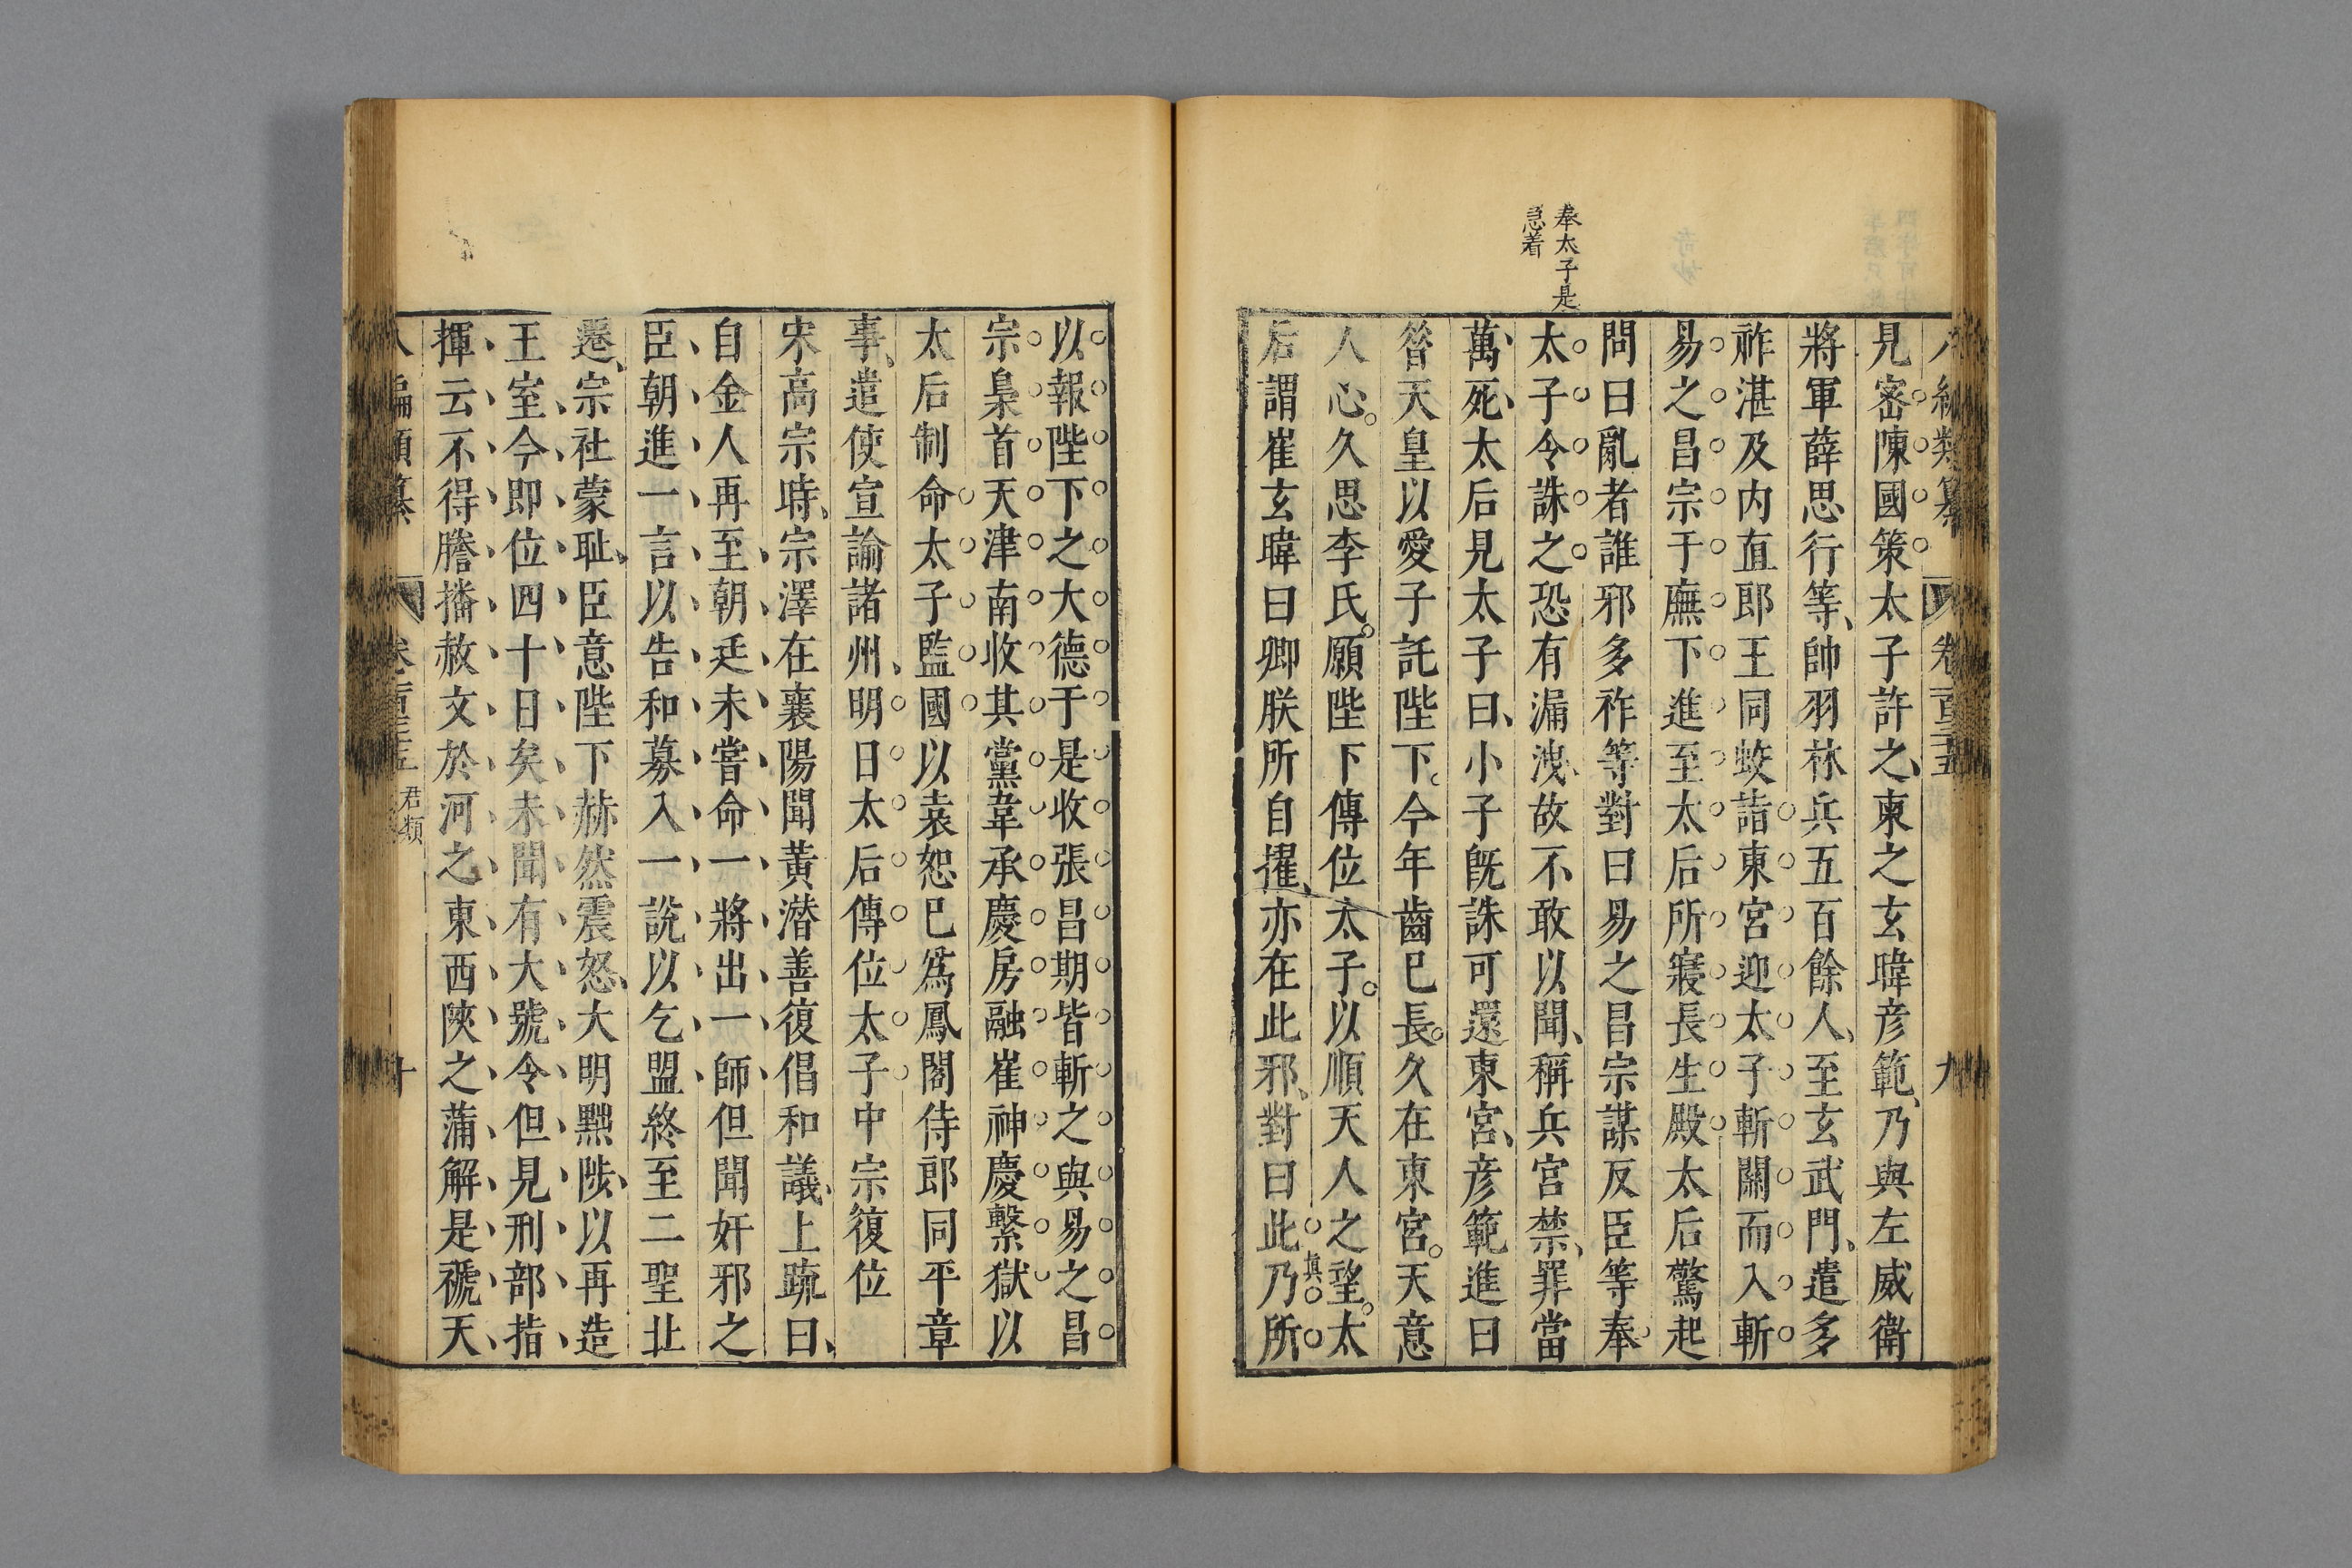 八編類纂 卷一百三十五 九
見密陳國策太子許之柬之玄暐彦範乃與左威衛
將軍薛思行等帥羽林兵五百餘人至玄武門遣多
祚湛及内直郎王同蛟詣東宮迎太子斬關而入斬
易之昌宗于廡下進至太后所寢長生殿太后驚起
問曰亂者誰邪多祚等對曰易之昌宗謀反臣等奉
太子令誅之恐有漏洩故不敢以聞稱兵宮禁罪當
奉太子是
急着
萬死太后見太子曰小子旣誅可還東宮彦範進曰
昝天皇以愛子託陛下今年齒已長久在東宮天意
人心久思李氏願陛下傳位太子以順天人之望太
后謂崔玄暐曰卿朕所自擢亦在此邪對曰此乃所
真
以報陛下之大德于是收張昌期皆斬之與易之昌
宗梟首天津南收其黨韋承慶房融崔神慶繫獄以
太后制命太子監國以袁恕已爲鳳閣侍郎同平章
事遣使宣諭諸州明日太后傳位太子中宗復位
宋高宗時宗澤在襄陽聞黃潛善復倡和議上疏曰
自金人再至朝廷未嘗命一將出一師但聞奸邪之
臣朝進一言以告和募入一說以乞盟終至二聖北
遷宗社蒙耻臣意陛下赫然震怒大明黜陟以再造
王室今即位四十日矣未聞有大號令但見刑部指
揮云不得謄播赦文於河之東西陝之蒲解是褫天
八編類纂 卷一百三十五 君類 十